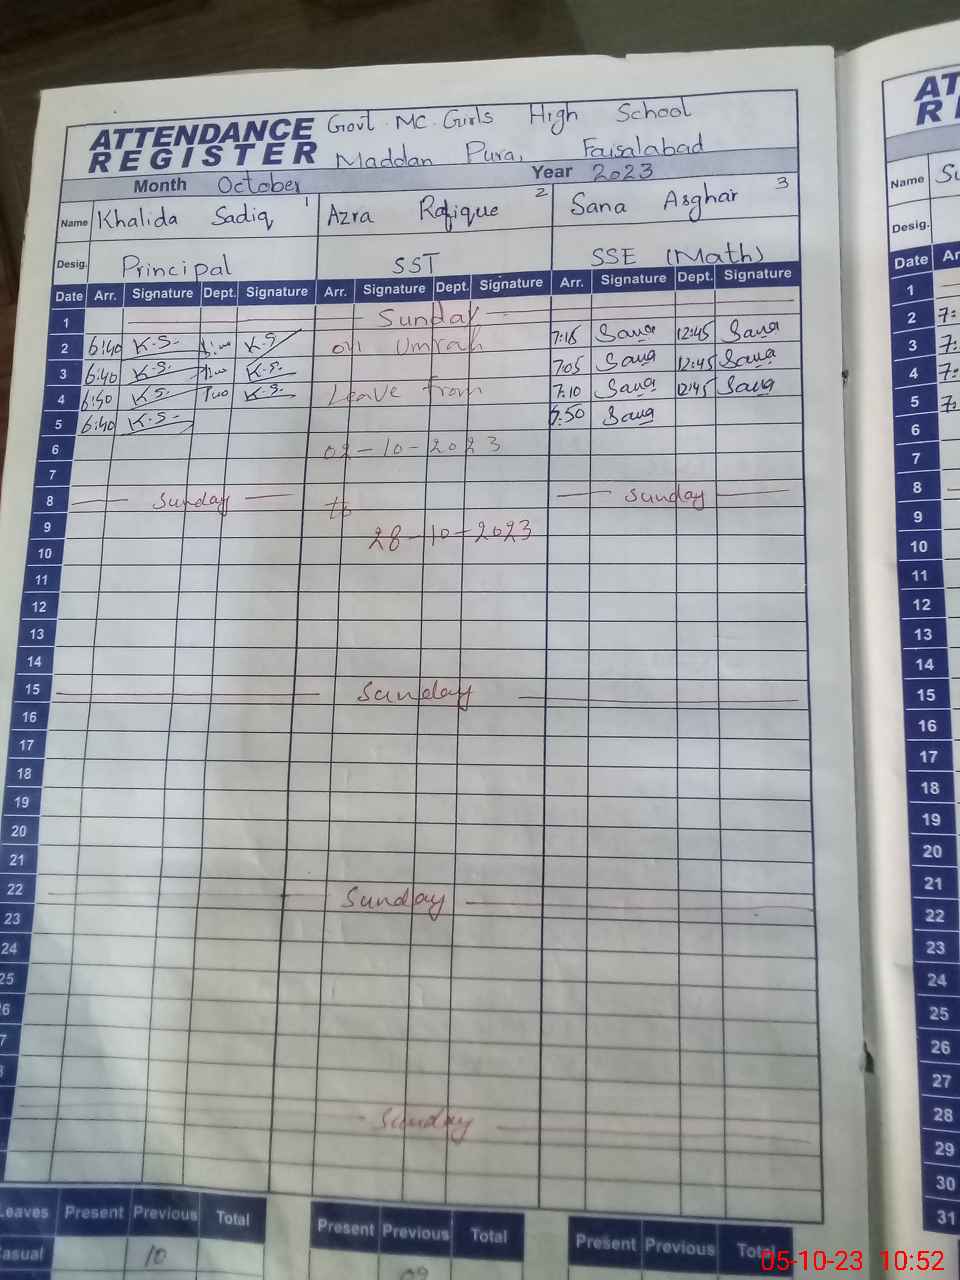 ATTENDANCE REGISTER
Govt. MC. Girls High School
Maddan Pura, Faisalabad
Month October Year 2023
Name Khalida Sadiq 1 Azra Rafique 2 Sana Asghar 3
Desig. Principal SST SSE (Math)
Date Arr. Signature Dept. Signature Arr. Signature Dept. Signature Arr. Signature Dept. Signature
1 Sunday
2 6:40 K.S. K.S on Umrah 7:15 Sana 12:45 Sana
3 6:40 K.S. K.S. 7:05 Sana 12:45 Sana
4 6:50 K.S. Two K.S. Leave from 7:10 Sana 12:45 Sana
5 6:40 K.S. 6:50 Sana
6 02-10-2023
7
8 Sunday to Sunday
9 28-10-2023
10
11
12
13
14
15 Sunday
16
17
18
19
20
21
22 Sunday
23
24
25
6
7
Sunday
Leaves Present Previous Total Present Previous Total Present Previous Total
Casual 10 09
AT
RE
Name Su
Desig.
Date Ar
1
2 7:
3 7:
4 7:
5 7:
6
7
8
9
10
11
12
13
14
15
16
17
18
19
20
21
22
23
24
25
26
27
28
29
30
31
05-10-23 10:52